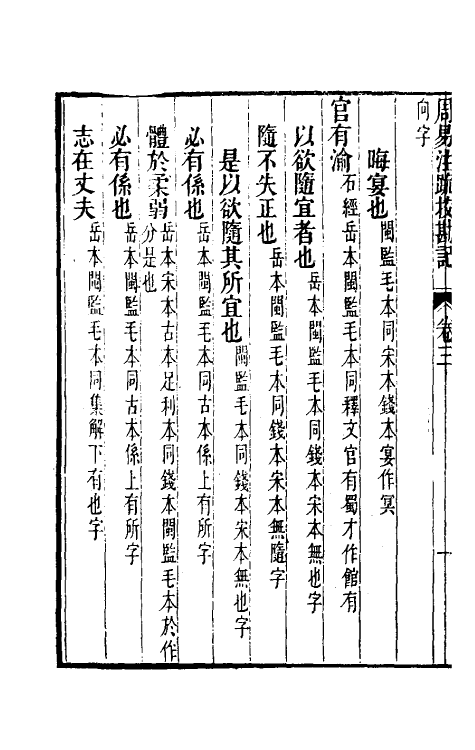 周易注疏挍勘記　卷三　一
向字
晦宴也閩監毛本同宋本錢本宴作冥
官有渝石經岳本閩監毛本同釋文官有蜀才作館有
以欲隨宜者也岳本閩監毛本同錢本宋本無也字
隨不失正也岳本閩監毛本同錢本宋本無隨字
是以欲隨其所宜也閩監毛本同錢本宋本無也字
必有係也岳本閩監毛本同古本係上有所字
體於柔弱岳本宋本古本足利本同錢本閩監毛本於作
分是也
必有係也岳本閩監毛本同古本係上有所字
志在丈夫岳本閩監毛本同集解下有也字